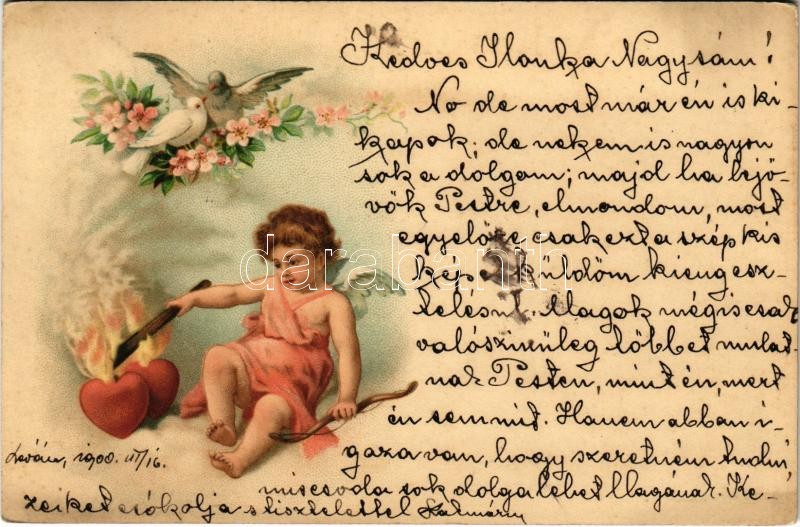 Kedves Ilonka Nagysám!
No de most már én is ki-
kapok; de nekem is nagyon
sok a dolgom; majd ha lejö-
vök Pestre, elmondom, most
egyelőre csak ezt a szép kis
kép küldöm kiengesz-
telésül. Magok mégiscsak
valószinüleg többet mulat-
nak Pesten, mint én, mert
én semmit. Hanem abban i-
gaza van, hogy szeretném tudni,
micsoda sok dolga lehet Magának. Ke-
zeiket csókolja s tisztelettel Kálmán
Léván, 1900. III/16.
darabanth